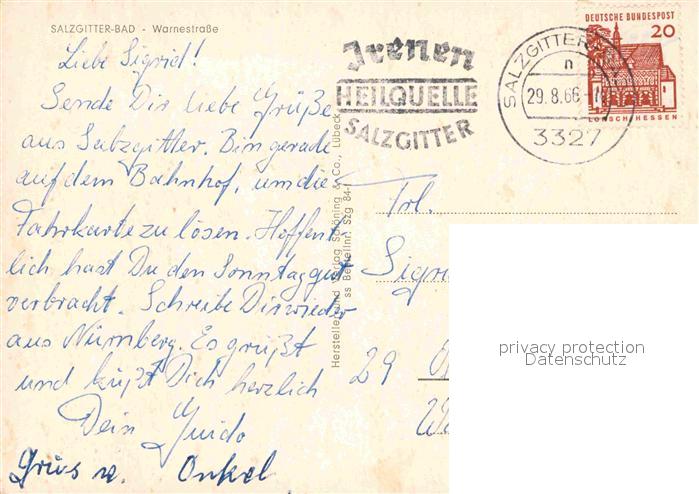 SALZGITTER-BAD - Warnestraße
Liebe Sigrid!
Sende Dir liebe Grüße
aus Salzgitter. Bin gerade
auf dem Bahnhof, um die
Fahrkarte zu lösen. Hoffent
lich hast Du den Sonntag gut
verbracht. Schreibe Dir wieder
aus Nürnberg. Es grüßt
und küßt Dich herzlich
Dein Guido
Grüs u. Onkel
Hersteller und Verlag Schöning & Co., Lübeck
ss Bestellnr. Szg 84-f
Irenen
HEILQUELLE
SALZGITTER
SALZGITTER
n
29.8.66
3327
DEUTSCHE BUNDESPOST
20
LORSCH/HESSEN
Frl.
Sigri
29
privacy protection
Datenschutz